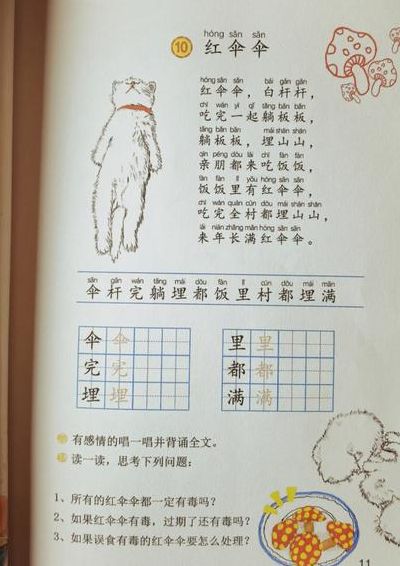 hóng sǎn sǎn
10 红伞伞
hóng sǎn sǎn bái gǎn gǎn
红伞伞，白杆杆，
chī wán yì qǐ tǎng bǎn bǎn
吃完一起躺板板，
tǎng bǎn bǎn mái shān shān
躺板板，埋山山，
qīn péng dōu lái chī fàn fàn
亲朋都来吃饭饭，
fàn fàn lǐ yǒu hóng sǎn sǎn
饭饭里有红伞伞，
chī wán quán cūn dōu mái shān shān
吃完全村都埋山山，
lái nián zhǎng mǎn hóng sǎn sǎn
来年长满红伞伞。
sǎn gǎn wán tǎng mái dōu fàn lǐ cūn dōu mái mǎn
伞杆完躺埋都饭里村都埋满
伞伞 里里
完完 都都
埋埋 满满
有感情的唱一唱并背诵全文。
读一读，思考下列问题：
1、所有的红伞伞都一定有毒吗？
2、如果红伞伞有毒，过期了还有毒吗？
3、如果误食有毒的红伞伞要怎么处理？
11